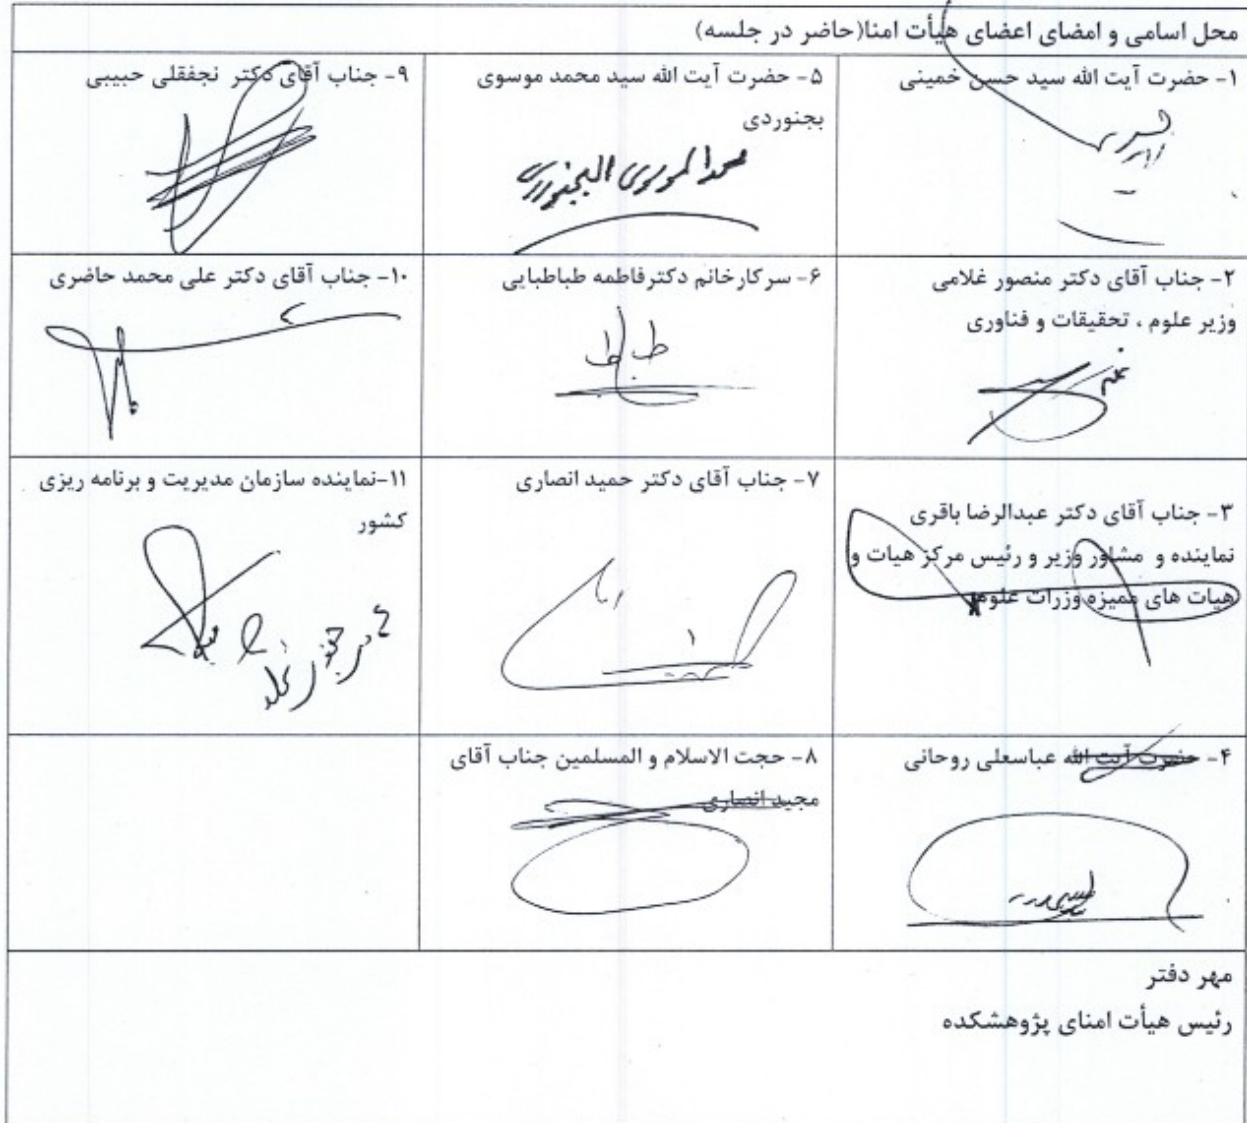 محل اسامی و امضای اعضای هیأت امنا(حاضر در جلسه)
۱- حضرت آیت الله سید حسن خمینی
۵- حضرت آیت الله سید محمد موسوی
بجنوردی
محمد الموسوی البجنوردی
۹- جناب آقای دکتر نجفقلی حبیبی
۲- جناب آقای دکتر منصور غلامی
وزیر علوم ، تحقیقات و فناوری
۶- سرکارخانم دکترفاطمه طباطبایی
۱۰- جناب آقای دکتر علی محمد حاضری
۳- جناب آقای دکتر عبدالرضا باقری
نماینده و مشاور وزیر و رئیس مرکز هیات و
هیات های ممیزه وزرات علوم
۷- جناب آقای دکتر حمید انصاری
۱۱-نماینده سازمان مدیریت و برنامه ریزی
کشور
۴- حضرت آیت الله عباسعلی روحانی
۸- حجت الاسلام و المسلمین جناب آقای
مجید انصاری
مهر دفتر
رئیس هیأت امنای پژوهشکده